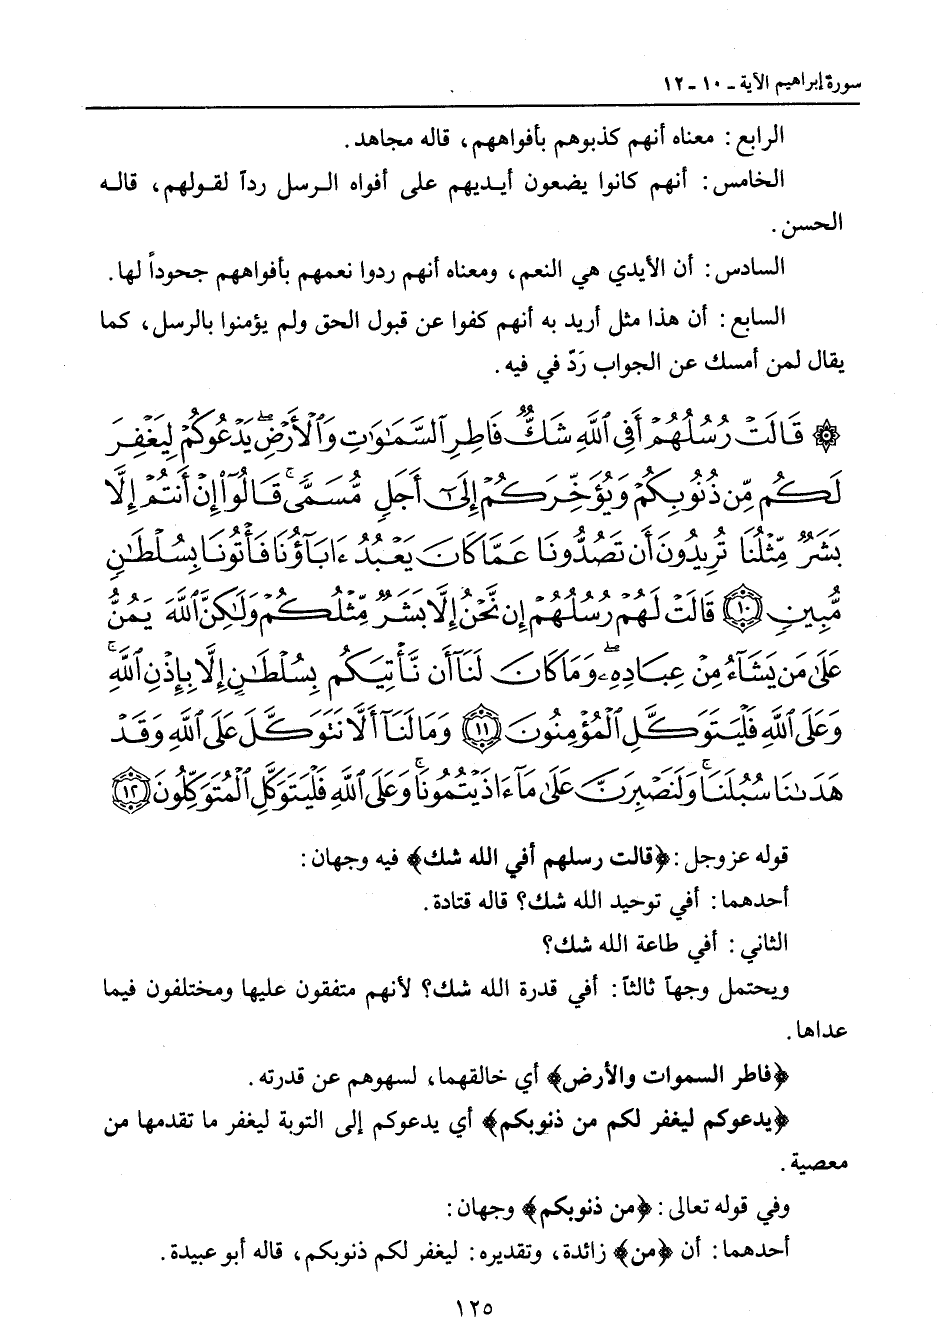 سورة إبراهيم الآية - ١٠ - ١٢
الرابع: معناه أنهم كذبوهم بأفواههم، قاله مجاهد.
الخامس: أنهم كانوا يضعون أيديهم على أفواه الرسل رداً لقولهم، قاله
الحسن.
السادس: أن الأيدي هي النعم، ومعناه أنهم ردوا نعمهم بأفواههم جحوداً لها.
السابع: أن هذا مثل أريد به أنهم كفوا عن قبول الحق ولم يؤمنوا بالرسل، كما
يقال لمن أمسك عن الجواب رَدّ في فيه.
۞ قَالَتْ رُسُلُهُمْ أَفِى ٱللَّهِ شَكٌّ فَاطِرِ ٱلسَّمَٰوَٰتِ وَٱلْأَرْضِۖ يَدْعُوكُمْ لِيَغْفِرَ
لَكُم مِّن ذُنُوبِكُمْ وَيُؤَخِّرَكُمْ إِلَىٰٓ أَجَلٍ مُّسَمًّىۚ قَالُوٓا۟ إِنْ أَنتُمْ إِلَّا
بَشَرٌ مِّثْلُنَا تُرِيدُونَ أَن تَصُدُّونَا عَمَّا كَانَ يَعْبُدُ ءَابَآؤُنَا فَأْتُونَا بِسُلْطَٰنٍ
مُّبِينٍ ١٠ قَالَتْ لَهُمْ رُسُلُهُمْ إِن نَّحْنُ إِلَّا بَشَرٌ مِّثْلُكُمْ وَلَٰكِنَّ ٱللَّهَ يَمُنُّ
عَلَىٰ مَن يَشَآءُ مِنْ عِبَادِهِۦۖ وَمَا كَانَ لَنَآ أَن نَّأْتِيَكُم بِسُلْطَٰنٍ إِلَّا بِإِذْنِ ٱللَّهِۚ
وَعَلَى ٱللَّهِ فَلْيَتَوَكَّلِ ٱلْمُؤْمِنُونَ ١١ وَمَا لَنَآ أَلَّا نَتَوَكَّلَ عَلَى ٱللَّهِ وَقَدْ
هَدَىٰنَا سُبُلَنَاۚ وَلَنَصْبِرَنَّ عَلَىٰ مَآ ءَاذَيْتُمُونَاۚ وَعَلَى ٱللَّهِ فَلْيَتَوَكَّلِ ٱلْمُتَوَكِّلُونَ ١٢
قوله عز وجل: ﴿قالت رسلهم أفي الله شك﴾ فيه وجهان:
أحدهما: أفي توحيد الله شك؟ قاله قتادة.
الثاني: أفي طاعة الله شك؟
ويحتمل وجهاً ثالثاً: أفي قدرة الله شك؟ لأنهم متفقون عليها ومختلفون فيما
عداها.
﴿فاطر السموات والأرض﴾ أي خالقهما، لسهوهم عن قدرته.
﴿يدعوكم ليغفر لكم من ذنوبكم﴾ أي يدعوكم إلى التوبة ليغفر ما تقدمها من
معصية.
وفي قوله تعالى: ﴿من ذنوبكم﴾ وجهان:
أحدهما: أن ﴿من﴾ زائدة، وتقديره: ليغفر لكم ذنوبكم، قاله أبو عبيدة.
١٢٥